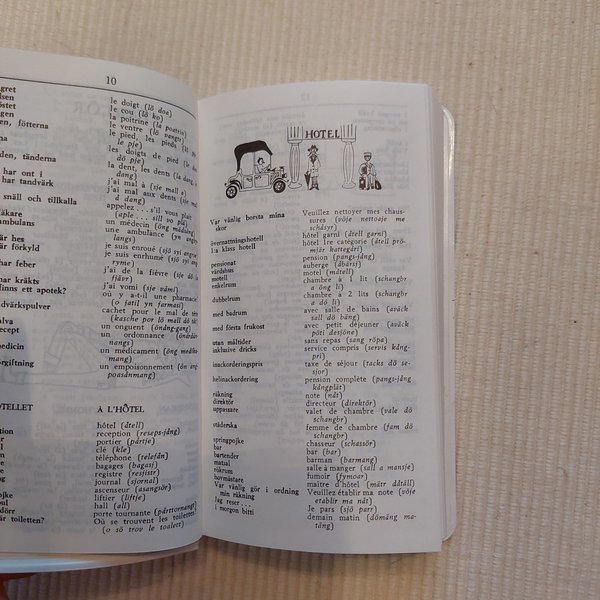 10
gret
le doigt (lö doa)
sen
le cou (lö ko)
östet
la poitrine (la poatrin)
en
le ventre (lö vangtr)
en, fötterna
le pied, les pieds
le pje)
les doigts de pied
dö pje)
den, tänderna
la dent, les dents
har ont i
j'ai mal à (sje mall
har tandvärk
j'ai mal aux dents
snäll och tillkalla
appelez . . . s'il vous plaît
(aple . . . sill vo plä)
läkare
un médecin
ambulans
une ambulance
langs)
är hes
je suis enroué
är förkyld
je suis enrhumé
ryme)
har feber
j'ai de la fièvre
fjävr)
har kräkts
j'ai vomi (sje våmi)
finns ett apotek?
où y a-t-il une pharmacie?
(o jatil yn farmasi)
dvärkspulver
cachet pour le mal de
alva
un onguent (öndng-gang)
recept
un ordonnance
nangs)
medicin
un médicament
dang)
orgiftning
un empoisonnement
poasånmang)
OTELLET
À L'HÔTEL
hôtel (åtell)
reception (reseps-jång)
portier (pårtje)
clé (kle)
téléphone (telefån)
bagages (bagasj)
registre (resjistr)
journal (sjornal)
ascenseur (asangsör)
liftier (liftje)
hall (all)
dörr
porte tournante (pårttornang)
är toiletten?
Où se trouvent les toilettes
(o sö trov le toalett)
HOTEL
Var vänlig borsta mina
skor
Veuillez nettoyer mes chaus-
sures (vöje nettoaje me
schåsyr)
övernattningshotell
hôtel garni (åtell garni)
i:a klass hotell
hôtel 1re categorie (åtell prö-
mjär kattegåri)
pensionat
pension (pangs-jång)
värdshus
auberge (åbärsj)
motell
motel (måtell)
enkelrum
chambre à 1 lit (schangbr
a öng li)
dubbelrum
chambre a 2 lits (schangbr
a dö li)
med badrum
avec salle de bains (aväck
sall dö bäng)
med första frukost
avec petit déjeuner (aväck
pöti desjöne)
utan måltider
sans repas (sang röpa)
inklusive dricks
service compris (servis kång-
pri)
inackorderingspris
taxe de séjour (tacks dö se-
sjor)
helinackordering
pension complète (pangs-jång
kångplät)
räkning
note (nåt)
direktor
directeur (direktör)
uppassare
valet de chambre (vale dö
schangbr)
städerska
femme de chambre (fam dö
schangbr)
springpojke
chasseur (schassör)
bar
bar (bar)
bartender
barman (barmang)
matsal
salle à manger (sall a mansje)
rökrum
fumoir (fymoar)
hovmästare
maître d'hôtel (mätr dåtäll)
Var vänlig gör i ordning
min räkning
Veuillez établir ma note (vöje
etablir ma nåt)
Jag reser . . .
Je pars (sjö parr)
i morgon bitti
demain matin (dömäng ma-
täng)